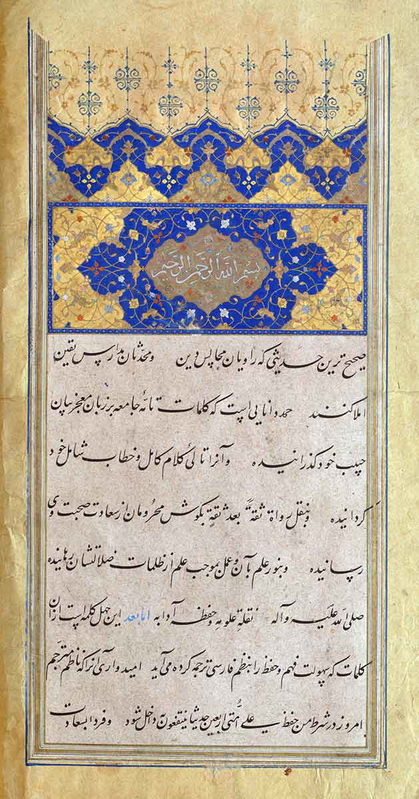 بسم الله الرحمن الرحیم
صحیح ترین حدیثی که راویان مجالس دین و محدثان مدارس یقین
املا کنند حمد دانایی است که کلمات تامهٔ جامعه بر زبان معجز بیان
حبیب خود گذرانیده و آنرا تالی کلام کامل و خطاب شامل خود
گردانیده و بنقل رواة ثقةً بعد ثقةٍ بگوش محرومان از سعادت صحبت وی
رسانیده و بنور علم بآن و عمل بموجب علم از ظلمات ضلالتشان رهانیده
صلی الله علیه و آله نقلة علومه و حفظة آدابه اما بعد این چهل کلمه است ازان
کلمات که سهولت فهم و حفظ را بنظم فارسی ترجمه کرده می آید امیدواری آنکه ناظم مترجم
امروز در شرط من حفظ علی امتی اربعین حدیثا ینتفعون داخل شود و فردا بسعادت